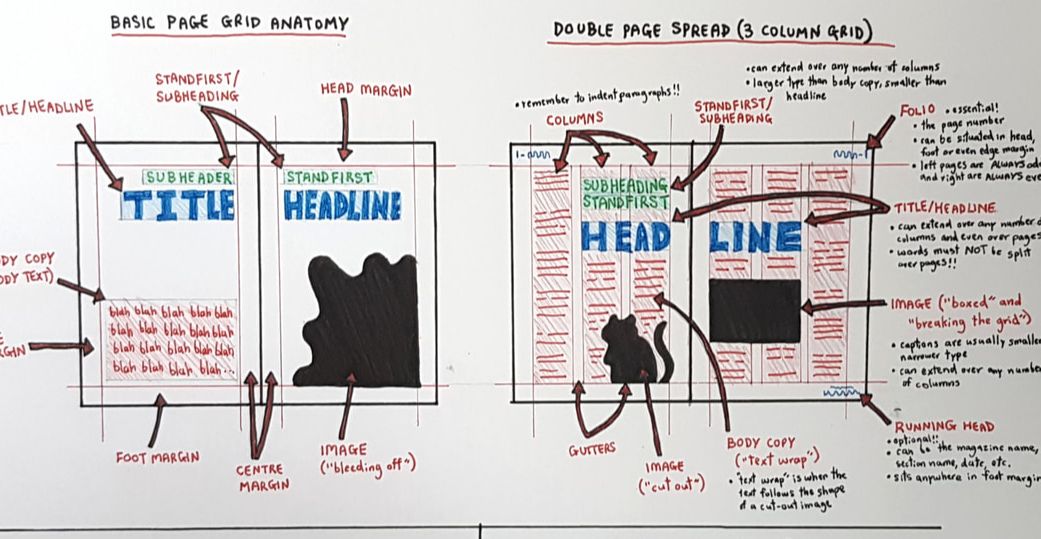 BASIC PAGE GRID ANATOMY
STANDFIRST/
SUBHEADING
HEAD MARGIN
TLE/HEADLINE
SUBHEADER
TITLE
STANDFIRST
HEADLINE
DY COPY
DY TEXT)
blah blah blah blah blah
blah blah blah blah blah
blah blah blah blah blah
blah blah blah blah...
RGIN
FOOT MARGIN
CENTRE
MARGIN
IMAGE
("bleeding off")
DOUBLE PAGE SPREAD (3 COLUMN GRID)
• can extend over any number of columns
• larger type than body copy, smaller than
headline
• remember to indent paragraphs!!
COLUMNS
STANDFIRST/
SUBHEADING
FOLIO • essential!
• the page number
• can be situated in head,
foot or even edge margin
• left pages are ALWAYS od
and right are ALWAYS eve
SUBHEADING
STANDFIRST
HEAD
LINE
TITLE/HEADLINE
• can extend over any number o
columns and even over pages
• words must NOT be split
over pages!!
IMAGE ("boxed" and
"breaking the grid")
• captions are usually smaller
narrower type
• can extend over any number
of columns
RUNNING HEAD
• optional!!
• can be the magazine name,
section name, date, etc.
• sits anywhere in foot margin
GUTTERS
IMAGE
("cut out")
BODY COPY
("text wrap")
• "text wrap" is when the
text follows the shape
of a cut-out image